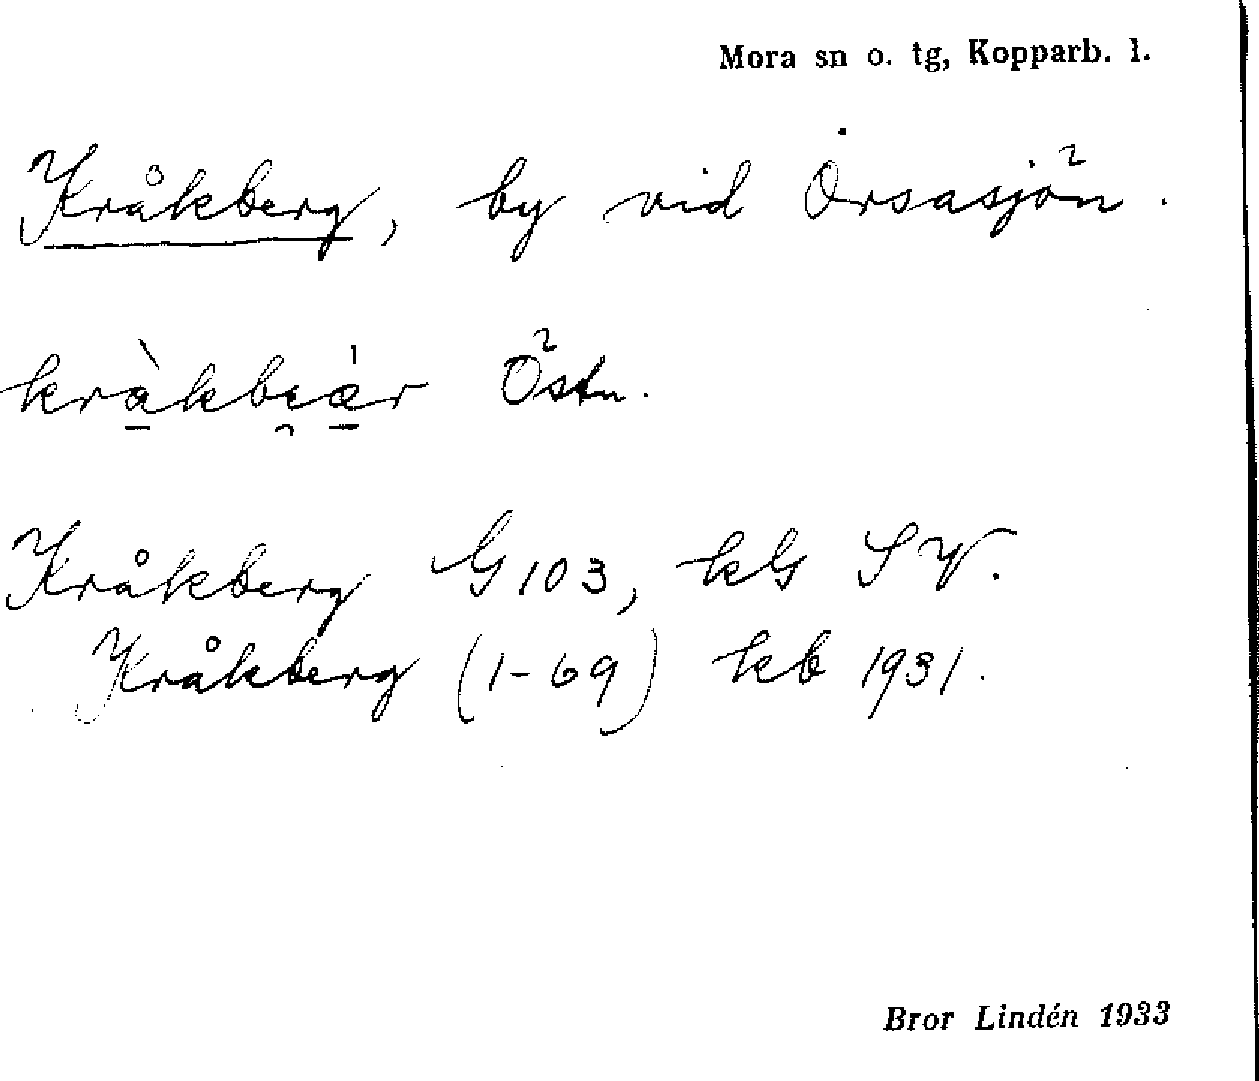 Mora sn o. tg, Kopparb. l.
Kråkberg, by vid Orsasjön.
kràkbi̯är Östn.
Kråkberg G 103, kG SV.
Kråkberg (1-69) kb 1931.
Bror Lindén 1933